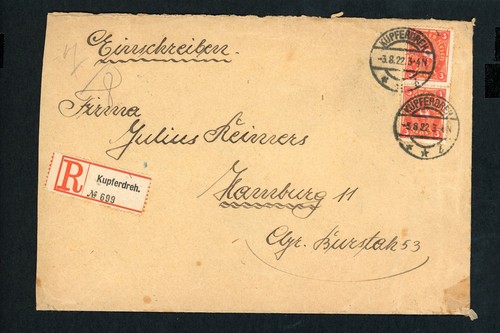 Einschreiben.
KUPFERDREH
-3.8.22.3-4N
KUPFERDREH
-3.8.22.3-4N
Firma
Julius Reimers
Hamburg 11
Gr. Burstah 53
R
Kupferdreh.
№ 699